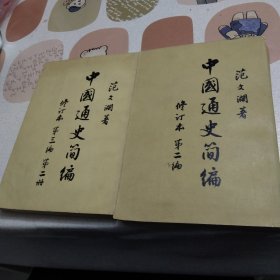 范文瀾著
中國通史简编
修订本 第三编 第二册
范文瀾著
中國通史简编
修订本 第二编